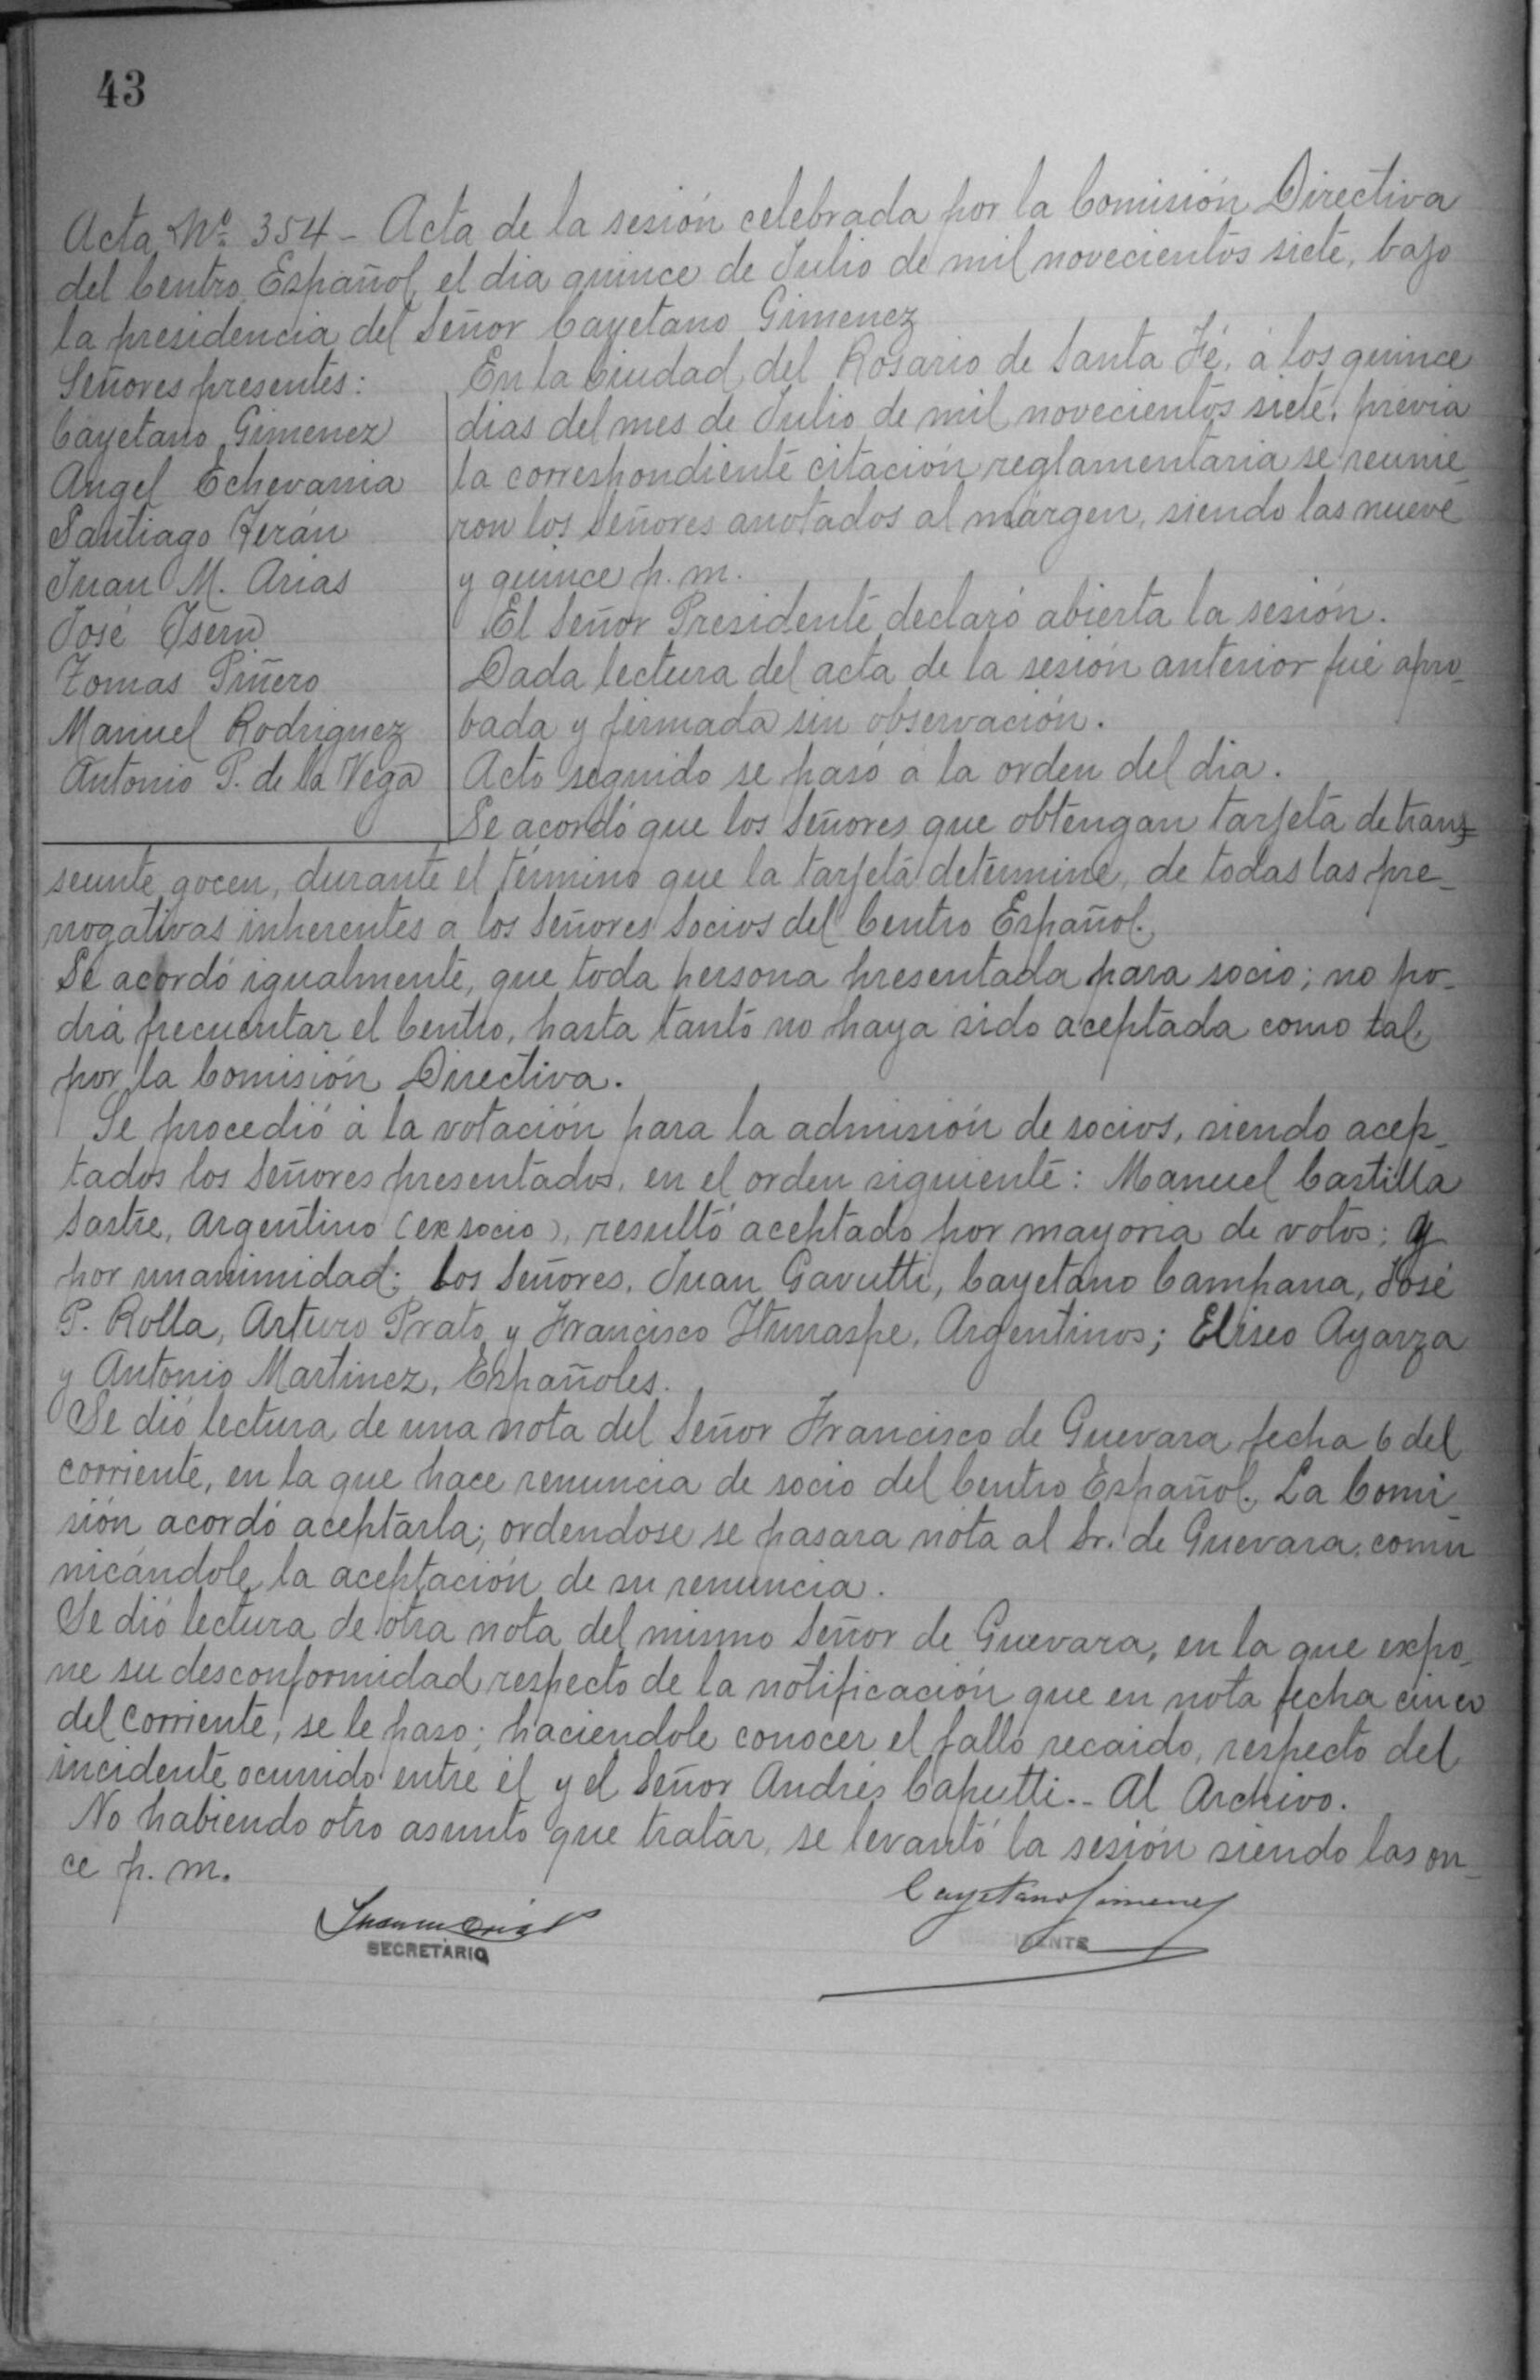 43
Acta Nº 354 - Acta de la sesión celebrada por la Comisión Directiva
del Centro Español, el dia quince de Julio de mil novecientos siete, bajo
la presidencia del Señor Cayetano Gimenez
Señores presentes:
Cayetano Gimenez
Angel Echevarria
Santiago Terán
Juan M. Arias
José Isern
Tomas Piñero
Manuel Rodriguez
Antonio P. de la Vega
En la Ciudad del Rosario de Santa Fé, á los quince
dias del mes de Julio de mil novecientos siete, prévia
la correspondiente citación reglamentaria se reunie_
ron los Señores anotados al márgen, siendo las nueve
y quince p. m.
El Señor Presidente declaró abierta la sesión.
Dada lectura del acta de la sesión anterior fué apro_
bada y firmada sin observación.
Acto seguido se pasó a la orden del dia.
Se acordó que los Señores que obtengan tarjeta de tran
seunte gocen, durante el término que la tarjeta determine, de todas las pre_
rrogativas inherentes a los Señores Socios del Centro Español.
Se acordó igualmente, que toda persona presentada para socio; no po_
drá frecuentar el Centro, hasta tanto no haya sido aceptada como tal,
por la Comisión Directiva.
Se procedió á la votación para la admisión de socios, siendo acep_
tados los Señores presentados, en el orden siguiente: Manuel Castilla
Sastre, Argentino (ex socio), resultó aceptado por mayoria de votos; y
por unanimidad: los Señores, Juan Gavutti, Cayetano Campana, José
P. Rolla, Arturo Prato y Francisco Iturraspe, Argentinos; Eliseo Ayarza
y Antonio Martinez, Españoles.
Se dió lectura de una nota del Señor Francisco de Guevara fecha 6 del
corriente, en la que hace renuncia de socio del Centro Español. La Comi_
sión acordó aceptarla; ordendose se pasara nota al Sr. de Guevara, comu
nicándole la aceptación de su renuncia.
Se dió lectura de otra nota del mismo Señor de Guevara, en la que expo_
ne su desconformidad respecto de la notificación que en nota fecha cinco
del corriente, se le paso; haciendole conocer el fallo recaido, respecto del
incidente ocurrido entre él y el Señor Andrés Caputti.- Al Archivo.
No habiendo otro asunto que tratar, se levantó la sesión siendo las on_
ce p. m.
Juan M Arias
SECRETARIO
Cayetano Gimenez